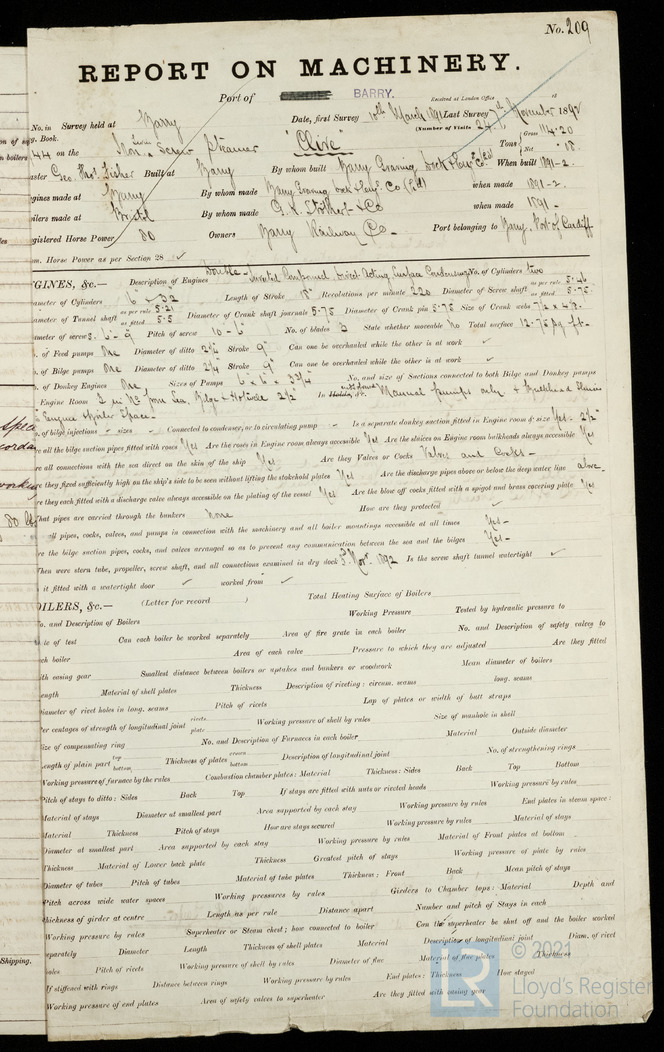 No. 209
REPORT ON MACHINERY.
Port of BARRY. Received at London Office
No. in Survey held at Barry Date, first Survey 10th March 1891 Last Survey 7th November 1892
Book. (Number of Visits 24)
44 on the Screw Steamer "Clive" Tons Gross 114.20 Net 18.
aster Geo. Thos. Fisher Built at Barry By whom built Barry Graving Dock & Co. When built 1891-2.
ngines made at Barry By whom made Barry Graving Dock & Co when made 1891-2.
oilers made at Bristol By whom made G. K. Stothert & Co when made 1891-
egistered Horse Power 80 Owners Barry Railway Co. Port belonging to Barry, Port of Cardiff
m. Horse Power as per Section 28 ✓
NGINES, &c.— Description of Engines Double Inverted Compound Direct Acting Surface Condensing No. of Cylinders two
ameter of Cylinders Length of Stroke 18" Revolutions per minute 220 Diameter of Screw shaft as per rule 5.46 as fitted 5.75
ameter of Tunnel shaft as per rule 5.21 as fitted 5.5 Diameter of Crank shaft journals 5.75 Diameter of Crank pin 5.75 Size of Crank webs
ameter of screw Pitch of screw 10-6 No. of blades 3 State whether moveable No Total surface 12.75 sq ft.
o. of Feed pumps One Diameter of ditto 2¼ Stroke 9" Can one be overhauled while the other is at work ✓
o. of Bilge pumps One Diameter of ditto 2¼ Stroke 9" Can one be overhauled while the other is at work ✓
o. of Donkey Engines One Sizes of Pumps No. and size of Suctions connected to both Bilge and Donkey pumps
Engine Room In Holds, &c. Manual pumps only & Bulkhead
o. of bilge injections sizes Connected to condenser, or to circulating pump Is a separate donkey suction fitted in Engine room & size Yes - 2½"
re all the bilge suction pipes fitted with roses Yes Are the roses in Engine room always accessible Yes Are the sluices on Engine room bulkheads always accessible Yes
re all connections with the sea direct on the skin of the ship Yes Are they Valves or Cocks Valves and Cocks
re they fixed sufficiently high on the ship's side to be seen without lifting the stokehold plates Yes Are the discharge pipes above or below the deep water line above
re they each fitted with a discharge valve always accessible on the plating of the vessel Yes Are the blow off cocks fitted with a spigot and brass covering plate Yes
hat pipes are carried through the bunkers None How are they protected ✓
all pipes, cocks, valves, and pumps in connection with the machinery and all boiler mountings accessible at all times Yes-
re the bilge suction pipes, cocks, and valves arranged so as to prevent any communication between the sea and the bilges Yes-
hen were stern tube, propeller, screw shaft, and all connections examined in dry dock 3rd Novr. 1892 Is the screw shaft tunnel watertight ✓
it fitted with a watertight door ✓ worked from ✓
OILERS, &c.— (Letter for record ) Total Heating Surface of Boilers
o. and Description of Boilers Working Pressure Tested by hydraulic pressure to
te of test Can each boiler be worked separately Area of fire grate in each boiler No. and Description of safety valves to
ach boiler Area of each valve Pressure to which they are adjusted Are they fitted
ith easing gear Smallest distance between boilers or uptakes and bunkers or woodwork Mean diameter of boilers
ength Material of shell plates Thickness Description of riveting: circum. seams long. seams
iameter of rivet holes in long. seams Pitch of rivets Lap of plates or width of butt straps
er centages of strength of longitudinal joint rivets plate Working pressure of shell by rules Size of manhole in shell
ize of compensating ring No. and Description of Furnaces in each boiler Material Outside diameter
ength of plain part top bottom Thickness of plates crown bottom Description of longitudinal joint No. of strengthening rings
Working pressure of furnace by the rules Combustion chamber plates: Material Thickness: Sides Back Top Bottom
Pitch of stays to ditto: Sides Back Top If stays are fitted with nuts or riveted heads Working pressure by rules
Material of stays Diameter at smallest part Area supported by each stay Working pressure by rules End plates in steam space:
Material Thickness Pitch of stays How are stays secured Working pressure by rules Material of stays
Diameter at smallest part Area supported by each stay Working pressure by rules Material of Front plates at bottom
Thickness Material of Lower back plate Thickness Greatest pitch of stays Working pressure of plate by rules
Diameter of tubes Pitch of tubes Material of tube plates Thickness: Front Back Mean pitch of stays
Pitch across wide water spaces Working pressures by rules Girders to Chamber tops: Material Depth and
thickness of girder at centre Length as per rule Distance apart Number and pitch of Stays in each
Working pressure by rules Superheater or Steam chest; how connected to boiler Can the superheater be shut off and the boiler worked
separately Diameter Length Thickness of shell plates Material Description of longitudinal joint Diam. of rivet
holes Pitch of rivets Working pressure of shell by rules Diameter of flue Material of flue plates Thickness
If stiffened with rings Distance between rings Working pressure by rules End plates: Thickness How stayed
Working pressure of end plates Area of safety valves to superheater Are they fitted with easing gear
© 2021
Lloyd's Register
Foundation
Shipping.